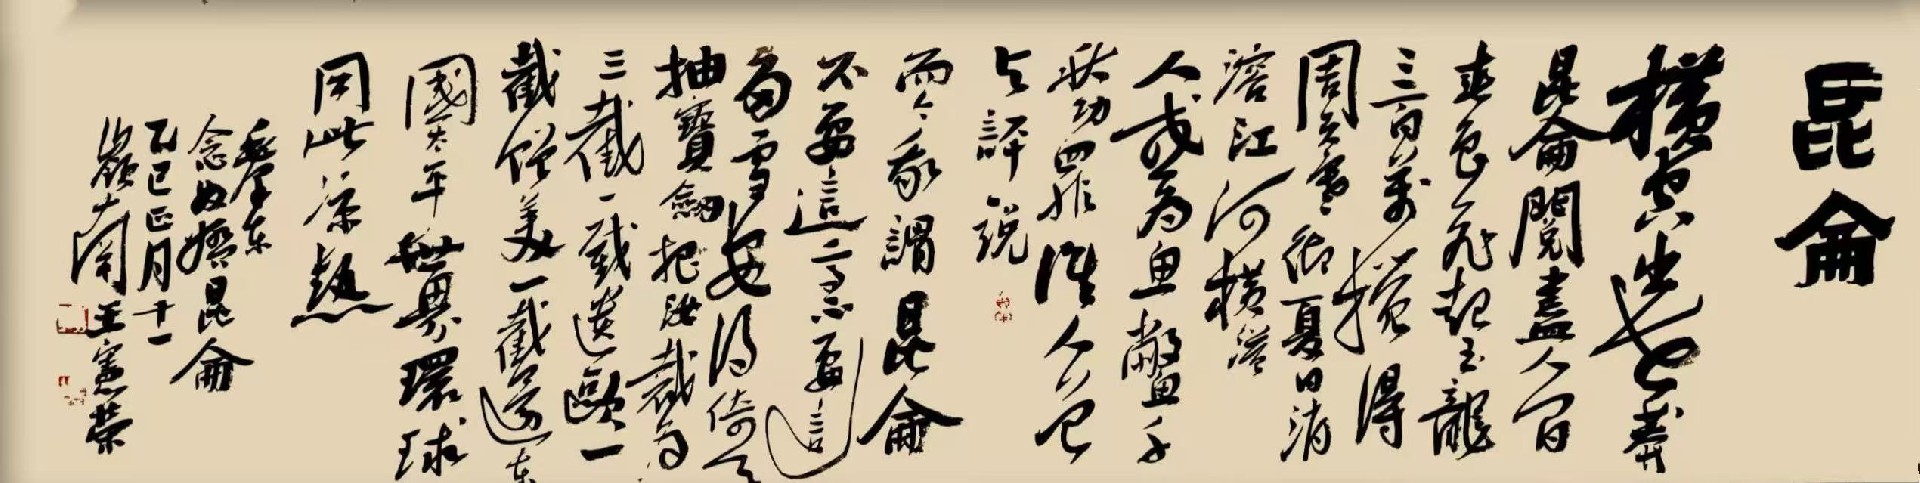 昆侖
橫空出世莽
昆侖閱盡人间
春色飛起玉龍
三百萬攪得
周天寒徹夏日消
溶江河橫溢
人或为魚鱉千
秋功罪誰人曾
与評說
而今我謂昆侖
不要這高不要這
多雪安得倚天
抽寶劍把汝裁为
三截一截遺歐一
截贈美一截還東
國太平世界環球
同此涼熱
毛澤東
念奴嬌昆侖
乙巳正月十一
王憲榮